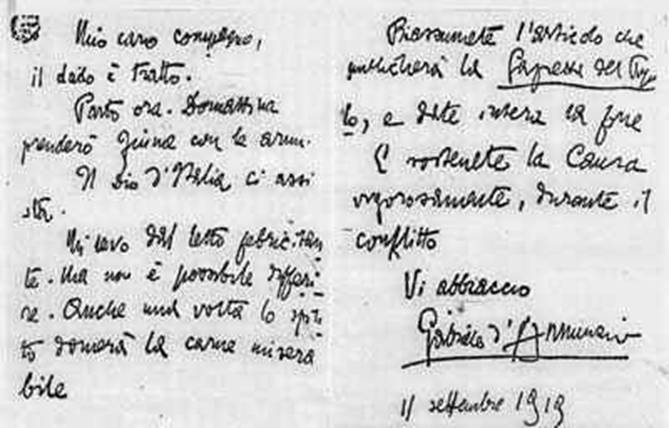 Mio caro compagno,
il dado è tratto.
Parto ora. Domattina
prenderò Fiume con le armi.
Il Dio d'Italia ci assi
sta.
Mi levo dal letto febricitan
te. Ma non è possibile differi
re. Anche una volta lo spiri
to domerà la carne misera
bile
Riassumete l'articolo che
pubblicherà la Gazzetta del Popo
lo, e date intera la fine
E sostenete la Causa
vigorosamente, durante il
conflitto
Vi abbraccio
Gabriele d'Annunzio
11 settembre 1919